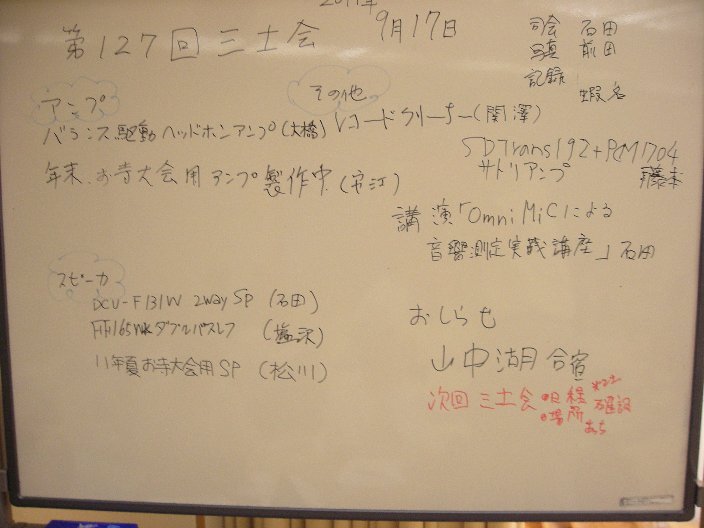 第127回 三土会 9月17日
司会 石田
写真 前田
記録 蝦名
アンプ
バランス駆動ヘッドホンアンプ(大橋)
年末、お寺大会用アンプ製作中
その他
レコードクリーナー(関澤)
SDTrans192+PCM1704
サトリアンプ 藤本
講演「OmniMiCによる
音響測定実践講座」石田
スピーカ
DCU-F131W 2way SP (石田)
ダブルバスレフ (塩沢)
11年夏お寺大会用SP (松川)
おしらせ
山中湖合宿
次回 三土会 日程
場所